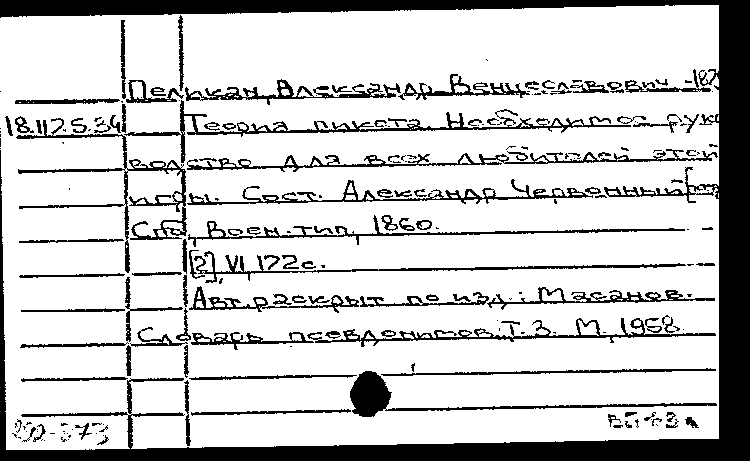 Пеликан, Александр Венцеславович -
18.117.5.34 Теория пикета. Необходимое руко
водство для всех любителей этой
игры. Сост. Александр Червонный
Спб, Воен. тип, 1860.
[2], VI, 172с.
Авт. раскрыт по изд.: Масанов.
Словарь псевдонимов. Т. 3. М., 1958
292-373